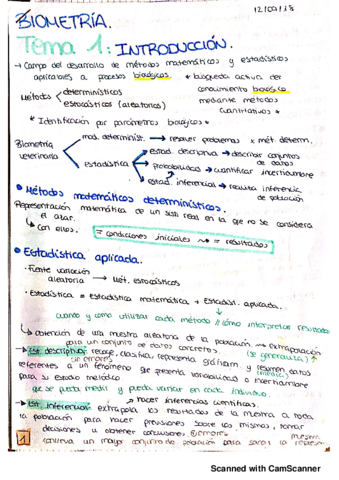 12/09/18
BIOMETRÍA.
Tema 1: INTRODUCCIÓN.
→ Campo del desarrollo de métodos matemáticos y estadísticos
aplicables a procesos biológicos. * búsqueda activa del
conocimiento biológico
mediante métodos
cuantitativos *
Métodos
determinísticos
estocásticos (aleatorios)
* Identificación por parámetros biológicos *
Biometría
veterinaria
mod. determinist. → resolver problemas x mét. determ.
Estadística
estad. descriptiva → describir conjuntos
de datos
probabilidad → cuantificar incertidumbre
estad. inferencial → inferencia
de población
• Métodos matemáticos determinísticos.
Representación matemática de un sist. real en la que no se considera
el azar.
→ Con ellos.
= condiciones iniciales → = resultados
• Estadística aplicada.
· Fuente variación
aleatoria → Mét. estocásticos
· Estadística = estadística matemática + Estadíst. aplicada.
cuándo y cómo utilizar cada método // cómo interpretar resultados
↳ obtención de una muestra aleatoria de la población → extrapolación
para un conjunto de datos concretos. (se generaliza)
→ Est. descriptiva: recoge, clasifica, representa gráficam. y resume datos
sin errores (media)
referentes a un fenómeno que presenta variabilidad o incertidumbre
para su estudio metódico
que se pueda medir y pueda variar en cada individuo.
↗ hacer inferencias científicas.
→ Est. inferencial: extrapola los resultados de la muestra a toda
la población para hacer previsiones sobre los mismos, tomar
decisiones u obtener conclusiones. errores
1
un mayor conjunto de población para sacar la
muestra
Scanned with CamScanner